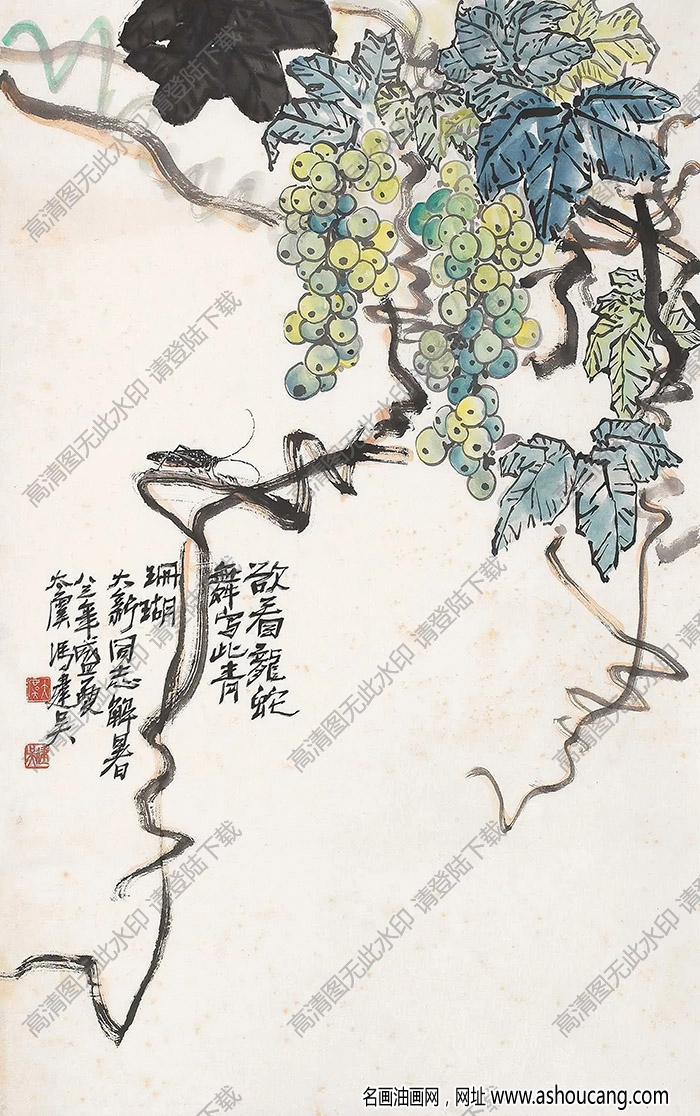 欲看龍蛇
舞寫此青
珊瑚
大新同志解暑
八三年盛夏
太虞馮建吳
高清图无此水印 请登陆下载
高清图无此水印 请登陆下载
高清图无此水印 请登陆下载
高清图无此水印 请登陆下载
高清图无此水印 请登陆下载
高清图无此水印 请登陆下载
高清图无此水印 请登陆下载
高清图无此水印 请登陆下载
高清图无此水印 请登陆下载
名画油画网，网址 www.ashoucang.com